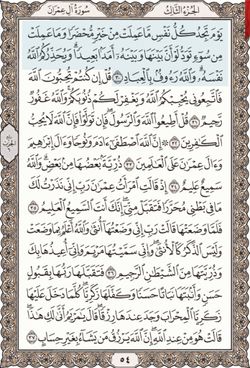 سُورَةُ آلِ عِمْرَانَ
الجُزْءُ الثَّالِثُ
يَوْمَ تَجِدُ كُلُّ نَفْسٍ مَّا عَمِلَتْ مِنْ خَيْرٍ مُّحْضَرًا وَمَا عَمِلَتْ
مِن سُوٓءٍ تَوَدُّ لَوْ أَنَّ بَيْنَهَا وَبَيْنَهُۥٓ أَمَدًۢا بَعِيدًا ۗ وَيُحَذِّرُكُمُ ٱللَّهُ
نَفْسَهُۥ ۗ وَٱللَّهُ رَءُوفٌۢ بِٱلْعِبَادِ ٣٠ قُلْ إِن كُنتُمْ تُحِبُّونَ ٱللَّهَ
فَٱتَّبِعُونِى يُحْبِبْكُمُ ٱللَّهُ وَيَغْفِرْ لَكُمْ ذُنُوبَكُمْ ۗ وَٱللَّهُ غَفُورٌ
رَّحِيمٌ ٣١ قُلْ أَطِيعُوا۟ ٱللَّهَ وَٱلرَّسُولَ ۖ فَإِن تَوَلَّوْا۟ فَإِنَّ ٱللَّهَ لَا يُحِبُّ
ٱلْكَٰفِرِينَ ٣٢ ۞ إِنَّ ٱللَّهَ ٱصْطَفَىٰٓ ءَادَمَ وَنُوحًا وَءَالَ إِبْرَٰهِيمَ
وَءَالَ عِمْرَٰنَ عَلَى ٱلْعَٰلَمِينَ ٣٣ ذُرِّيَّةًۢ بَعْضُهَا مِنۢ بَعْضٍ ۗ وَٱللَّهُ
سَمِيعٌ عَلِيمٌ ٣٤ إِذْ قَالَتِ ٱمْرَأَتُ عِمْرَٰنَ رَبِّ إِنِّى نَذَرْتُ لَكَ
مَا فِى بَطْنِى مُحَرَّرًا فَتَقَبَّلْ مِنِّىٓ ۖ إِنَّكَ أَنتَ ٱلسَّمِيعُ ٱلْعَلِيمُ ٣٥
فَلَمَّا وَضَعَتْهَا قَالَتْ رَبِّ إِنِّى وَضَعْتُهَآ أُنثَىٰ وَٱللَّهُ أَعْلَمُ بِمَا وَضَعَتْ
وَلَيْسَ ٱلذَّكَرُ كَٱلْأُنثَىٰ ۖ وَإِنِّى سَمَّيْتُهَا مَرْيَمَ وَإِنِّىٓ أُعِيذُهَا بِكَ
وَذُرِّيَّتَهَا مِنَ ٱلشَّيْطَٰنِ ٱلرَّجِيمِ ٣٦ فَتَقَبَّلَهَا رَبُّهَا بِقَبُولٍ
حَسَنٍ وَأَنۢبَتَهَا نَبَاتًا حَسَنًا وَكَفَّلَهَا زَكَرِيَّا ۖ كُلَّمَا دَخَلَ عَلَيْهَا
زَكَرِيَّا ٱلْمِحْرَابَ وَجَدَ عِندَهَا رِزْقًا ۖ قَالَ يَٰمَرْيَمُ أَنَّىٰ لَكِ هَٰذَا ۖ
قَالَتْ هُوَ مِنْ عِندِ ٱللَّهِ ۖ إِنَّ ٱللَّهَ يَرْزُقُ مَن يَشَآءُ بِغَيْرِ حِسَابٍ ٣٧
٥٤